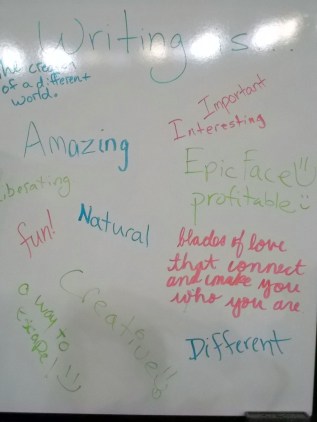 Writing is...
the creation
of a different
world.
Important
Interesting
Amazing
Epic Face!
profitable
liberating
fun!
Natural
blades of love
that connect
and make you
who you are
Creative!!
a way to
escape!
Different